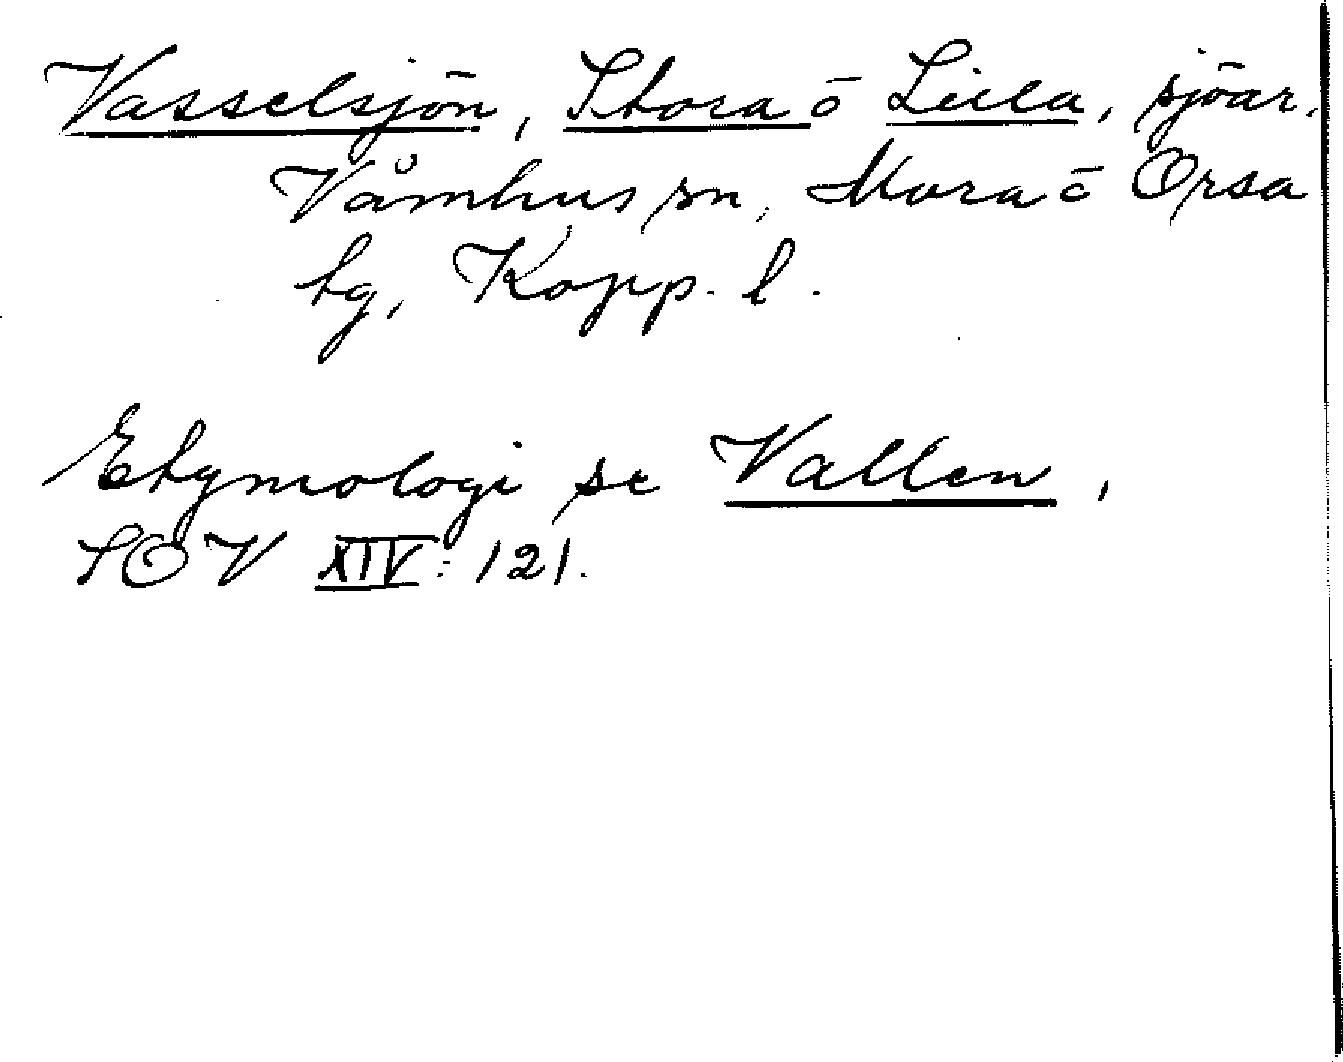 Vasselsjön, Stora o Lilla, sjöar.
Våmhus sn, Mora o Orsa
tg, Kopp. l.
Etymologi se Vallen,
SOV XIV: 121.